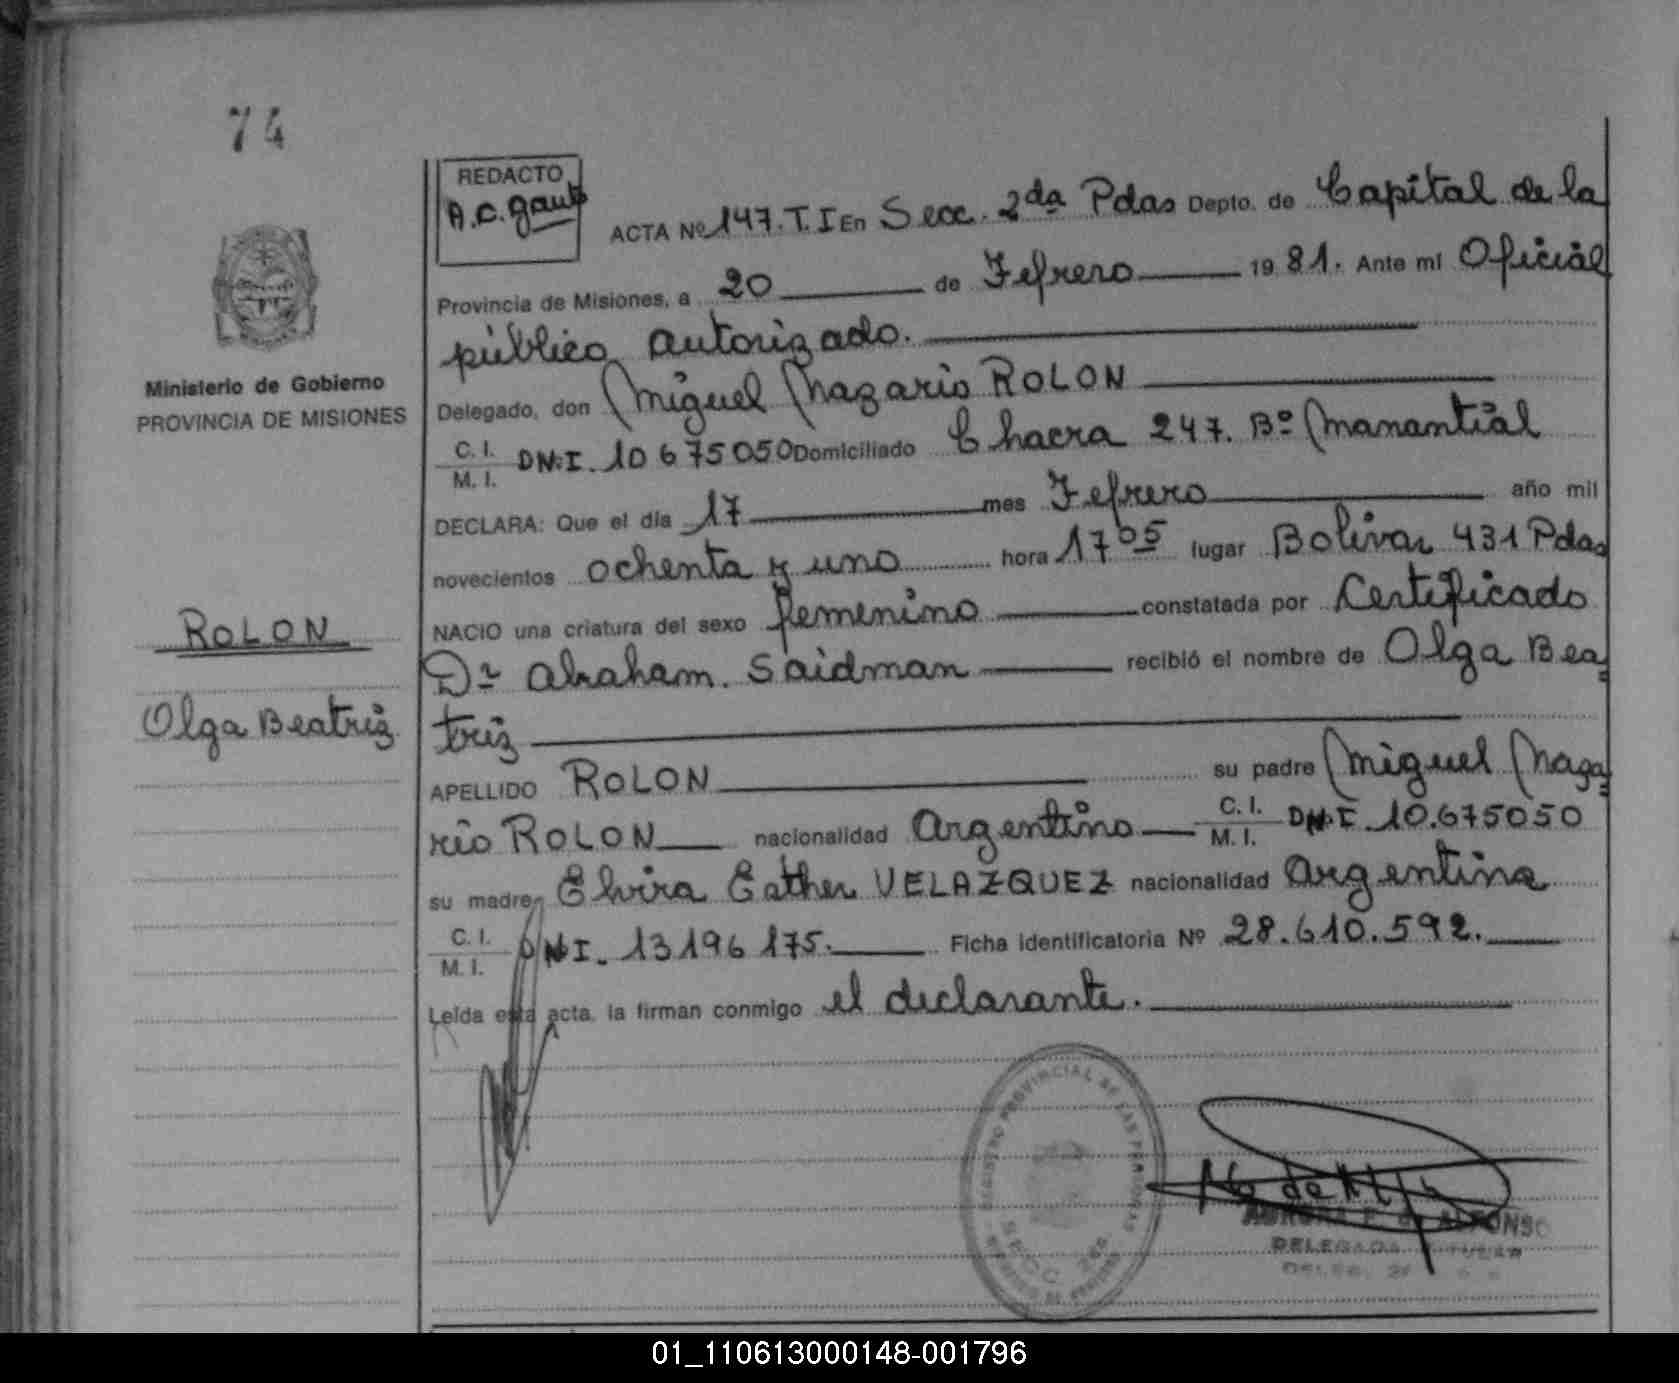 74
REDACTO
A.C. Gaut
ACTA Nº 147. T. I En Secc. 2da Pdas Depto. de Capital de la
Provincia de Misiones, a 20 de Febrero 19 81. Ante mí Oficial
público autorizado.
Delegado, don Miguel Nazario ROLON
C. I.
M. I. DN.I. 10675050 Domiciliado Chacra 247. Bº Manantial
DECLARA: Que el día 17 mes Febrero año mil
novecientos ochenta y uno hora 17 05 lugar Bolivar 431 Pdas
NACIO una criatura del sexo femenino constatada por Certificado
Dr Abraham. Saidman recibió el nombre de Olga Bea
triz
APELLIDO ROLON su padre Miguel Naza
rio ROLON nacionalidad Argentino C. I. M. I. DN.I. 10.675050
su madre Elvira Esther VELAZQUEZ nacionalidad Argentina
C. I.
M. I. DNI. 13196175. Ficha identificatoria Nº 28.610.592.
Leída esta acta, la firman conmigo el declarante.
Ministerio de Gobierno
PROVINCIA DE MISIONES
ROLON
Olga Beatriz
REGISTRO PROVINCIAL DE LAS PERSONAS
SECC 2da
AURORA F. de ALFONSO
DELEGADA TITULAR
01_110613000148-001796